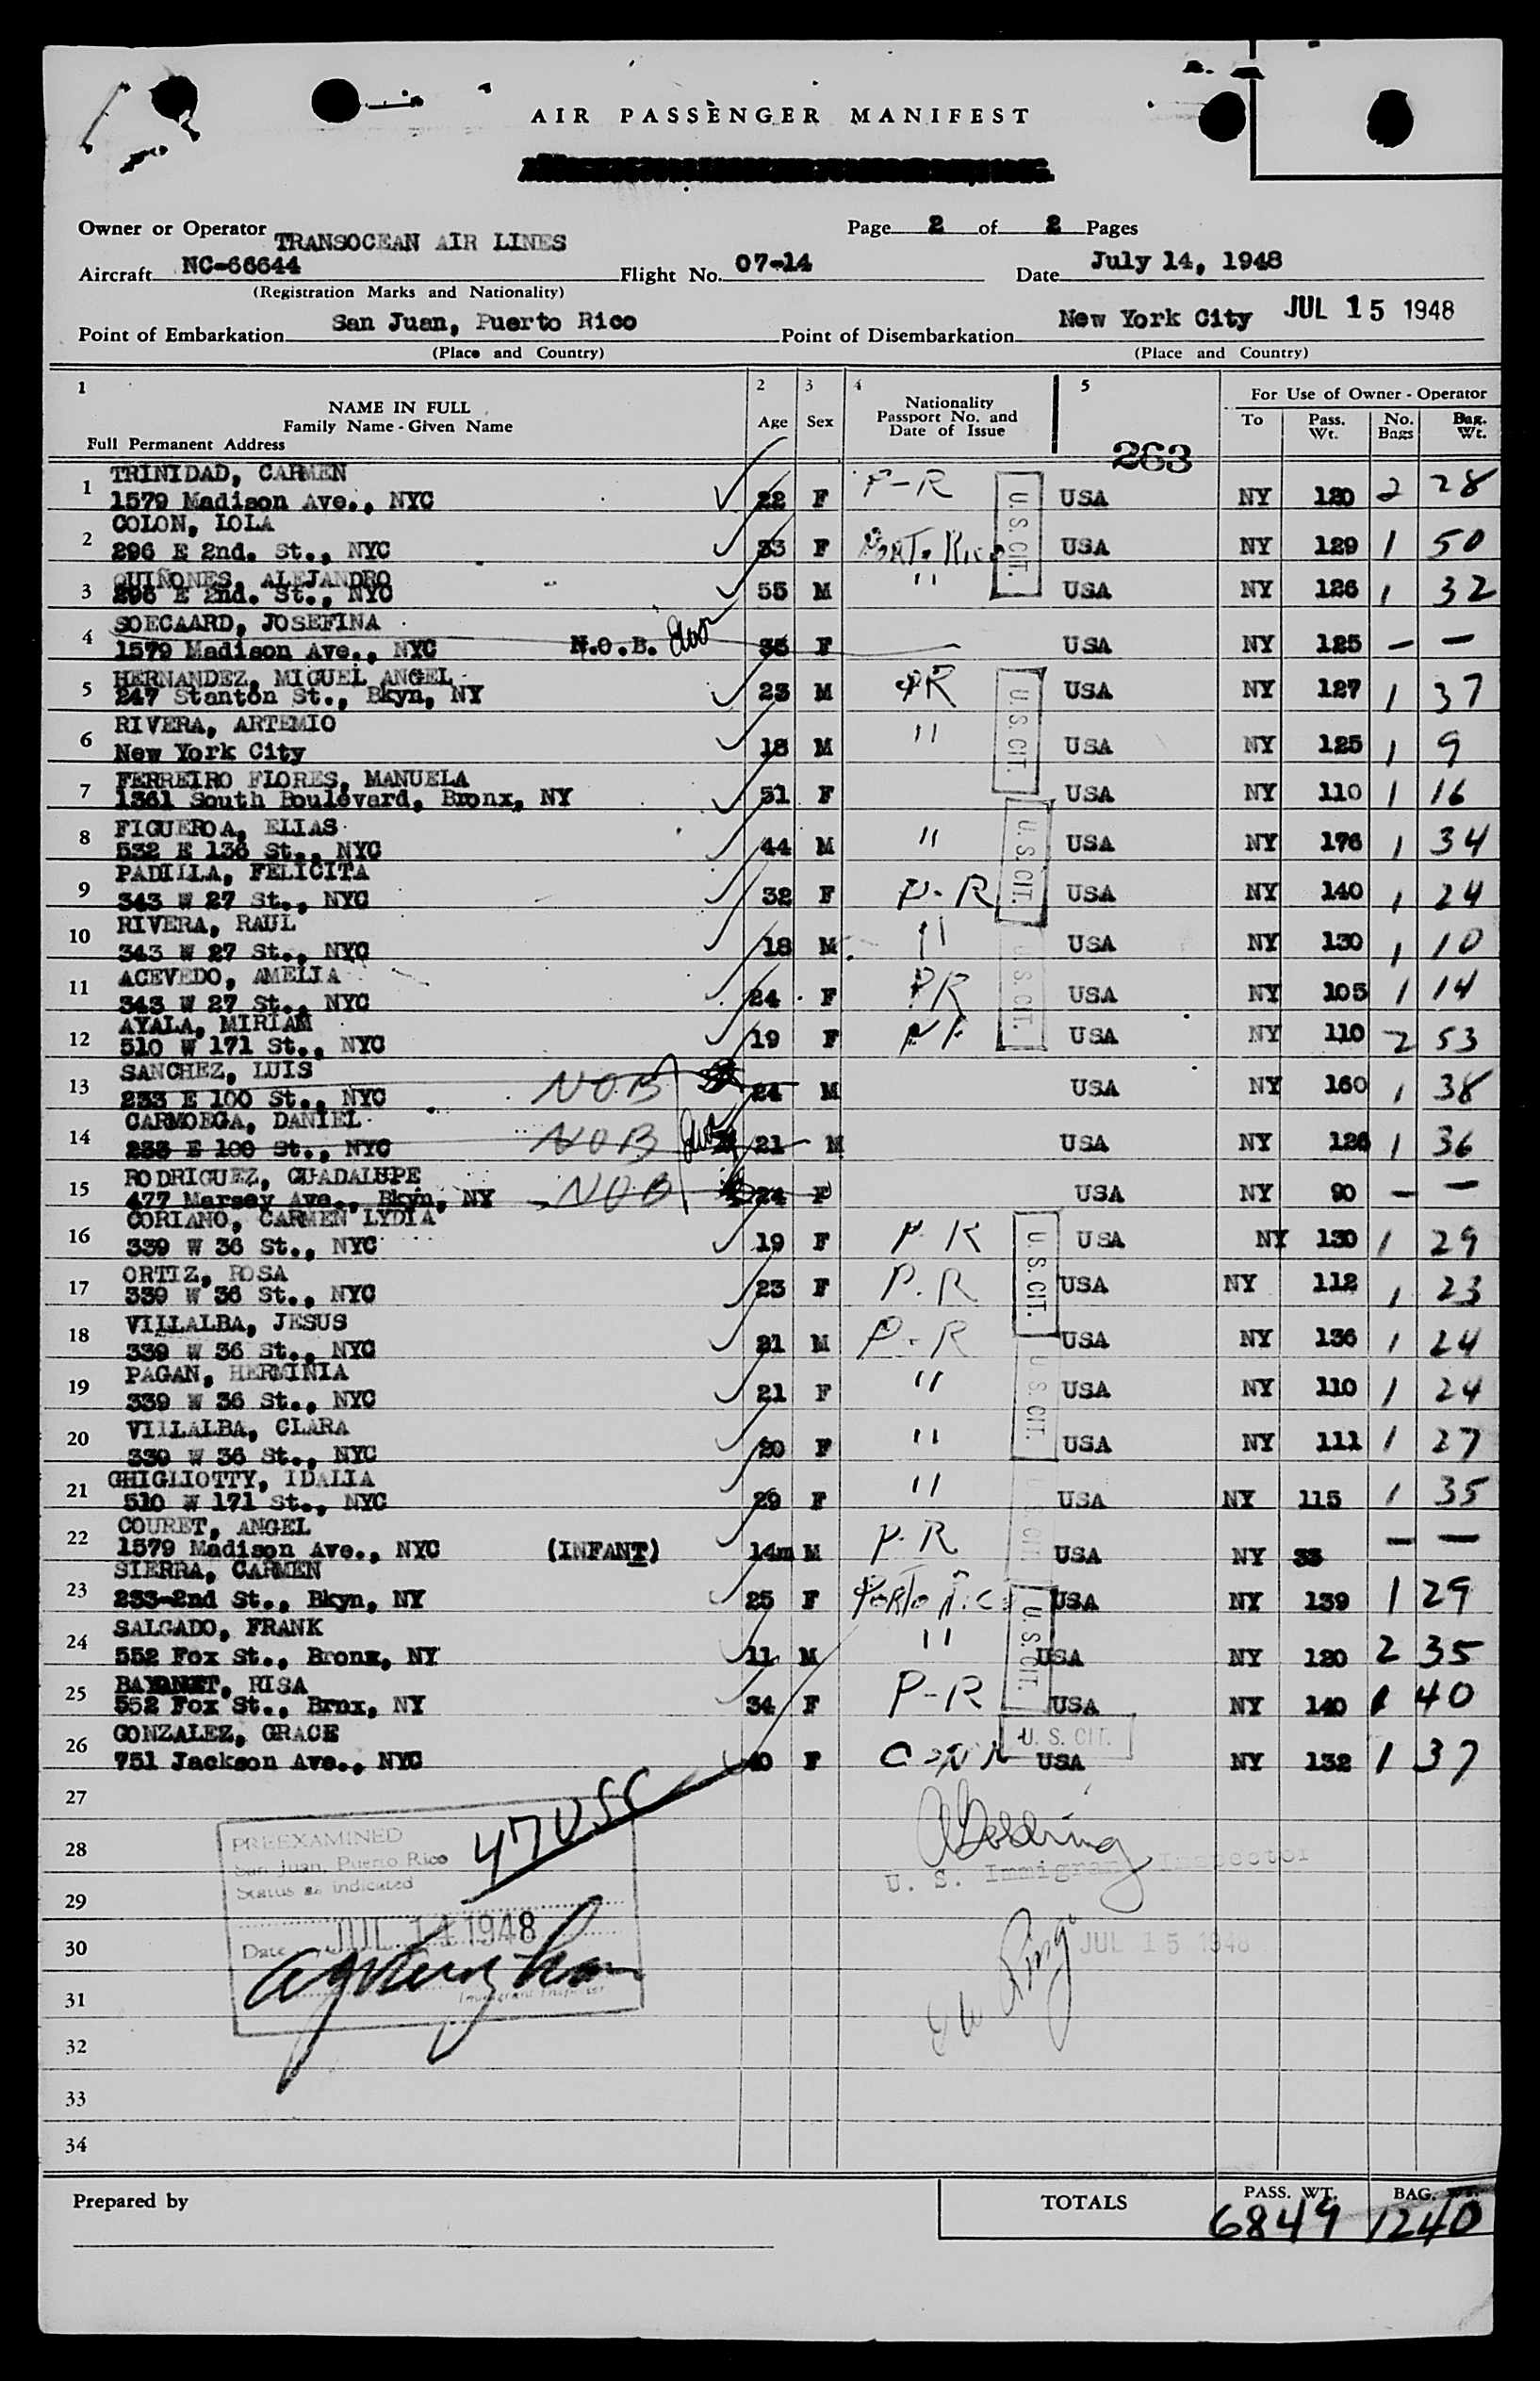 AIR PASSENGER MANIFEST
Owner or Operator TRANSOCEAN AIR LINES Page 2 of 2 Pages
Aircraft NC-66644 Flight No. 07-14 Date July 14, 1948
(Registration Marks and Nationality)
Point of Embarkation San Juan, Puerto Rico Point of Disembarkation New York City JUL 15 1948
(Place and Country) (Place and Country)
1 2 3 4 5 For Use of Owner - Operator
NAME IN FULL Age Sex Nationality To Pass. No. Bag.
Family Name - Given Name Passport No. and Wt. Bags Wt.
Full Permanent Address Date of Issue 263
TRINIDAD, CARMEN
1 1579 Madison Ave., NYC 22 F P-R U.S. CIT. USA NY 120 2 28
COLON, LOLA
2 296 E 2nd. St., NYC 33 F Porto Rico USA NY 129 1 50
QUIÑONES, ALEJANDRO
3 296 E 2nd. St., NYC 55 M " USA NY 126 1 32
SOECAARD, JOSEFINA
4 1579 Madison Ave., NYC N.O.B. 35 F — USA NY 125 — —
HERNANDEZ, MIGUEL ANGEL
5 247 Stanton St., Bkyn, NY 23 M PR U.S. CIT. USA NY 127 1 37
RIVERA, ARTEMIO
6 New York City 18 M " USA NY 125 1 9
FERREIRO FLORES, MANUELA
7 1361 South Boulevard, Bronx, NY 51 F USA NY 110 1 16
FIGUEROA, ELIAS
8 532 E 136 St., NYC 44 M " U.S. CIT. USA NY 176 1 34
PADILLA, FELICITA
9 343 W 27 St., NYC 32 F P-R USA NY 140 1 24
RIVERA, RAUL
10 343 W 27 St., NYC 18 M " U.S. CIT. USA NY 130 1 10
ACEVEDO, AMELIA
11 343 W 27 St., NYC 24 F PR USA NY 105 1 14
AYALA, MIRIAM
12 510 W 171 St., NYC 19 F USA NY 110 2 53
SANCHEZ, LUIS
13 233 E 100 St., NYC NOB 24 M USA NY 160 1 38
CARMOEGA, DANIEL
14 233 E 100 St., NYC NOB 21 M USA NY 126 1 36
RODRIGUEZ, GUADALUPE
15 477 Marsey Ave., Bkyn, NY NOB 24 F USA NY 90 — —
CORIANO, CARMEN LYDIA
16 339 W 36 St., NYC 19 F P R U.S. CIT. USA NY 130 1 29
ORTIZ, ROSA
17 339 W 36 St., NYC 23 F P.R USA NY 112 1 23
VILLALBA, JESUS
18 339 W 36 St., NYC 21 M P-R USA NY 136 1 24
PAGAN, HERMINIA
19 339 W 36 St., NYC 21 F " U.S. CIT. USA NY 110 1 24
VILLALBA, CLARA
20 339 W 36 St., NYC 20 F " USA NY 111 1 27
GHIGLIOTTY, IDALIA
21 510 W 171 St., NYC 29 F " USA NY 115 1 35
COURET, ANGEL
22 1579 Madison Ave., NYC (INFANT) 14m M P.R USA NY 33 — —
SIERRA, CARMEN
23 233-2nd St., Bkyn, NY 25 F Porto Ric U.S. CIT. USA NY 139 1 29
SALGADO, FRANK
24 552 Fox St., Bronx, NY 11 M " USA NY 120 2 35
RISA
25 552 Fox St., Brnx, NY 34 F P-R USA NY 140 1 40
GONZALEZ, GRACE
26 751 Jackson Ave., NYC 40 F U. S. CIT. USA NY 132 1 37
27
28
29
30
31
32
33
34
PREEXAMINED
San Juan, Puerto Rico
Status as indicated
47 USC
Date JUL 14 1948
Immigrant Inspector
U. S. Immigrant Inspector
JUL 15 1948
Prepared by TOTALS PASS. WT. 6849 BAG. WT. 1240